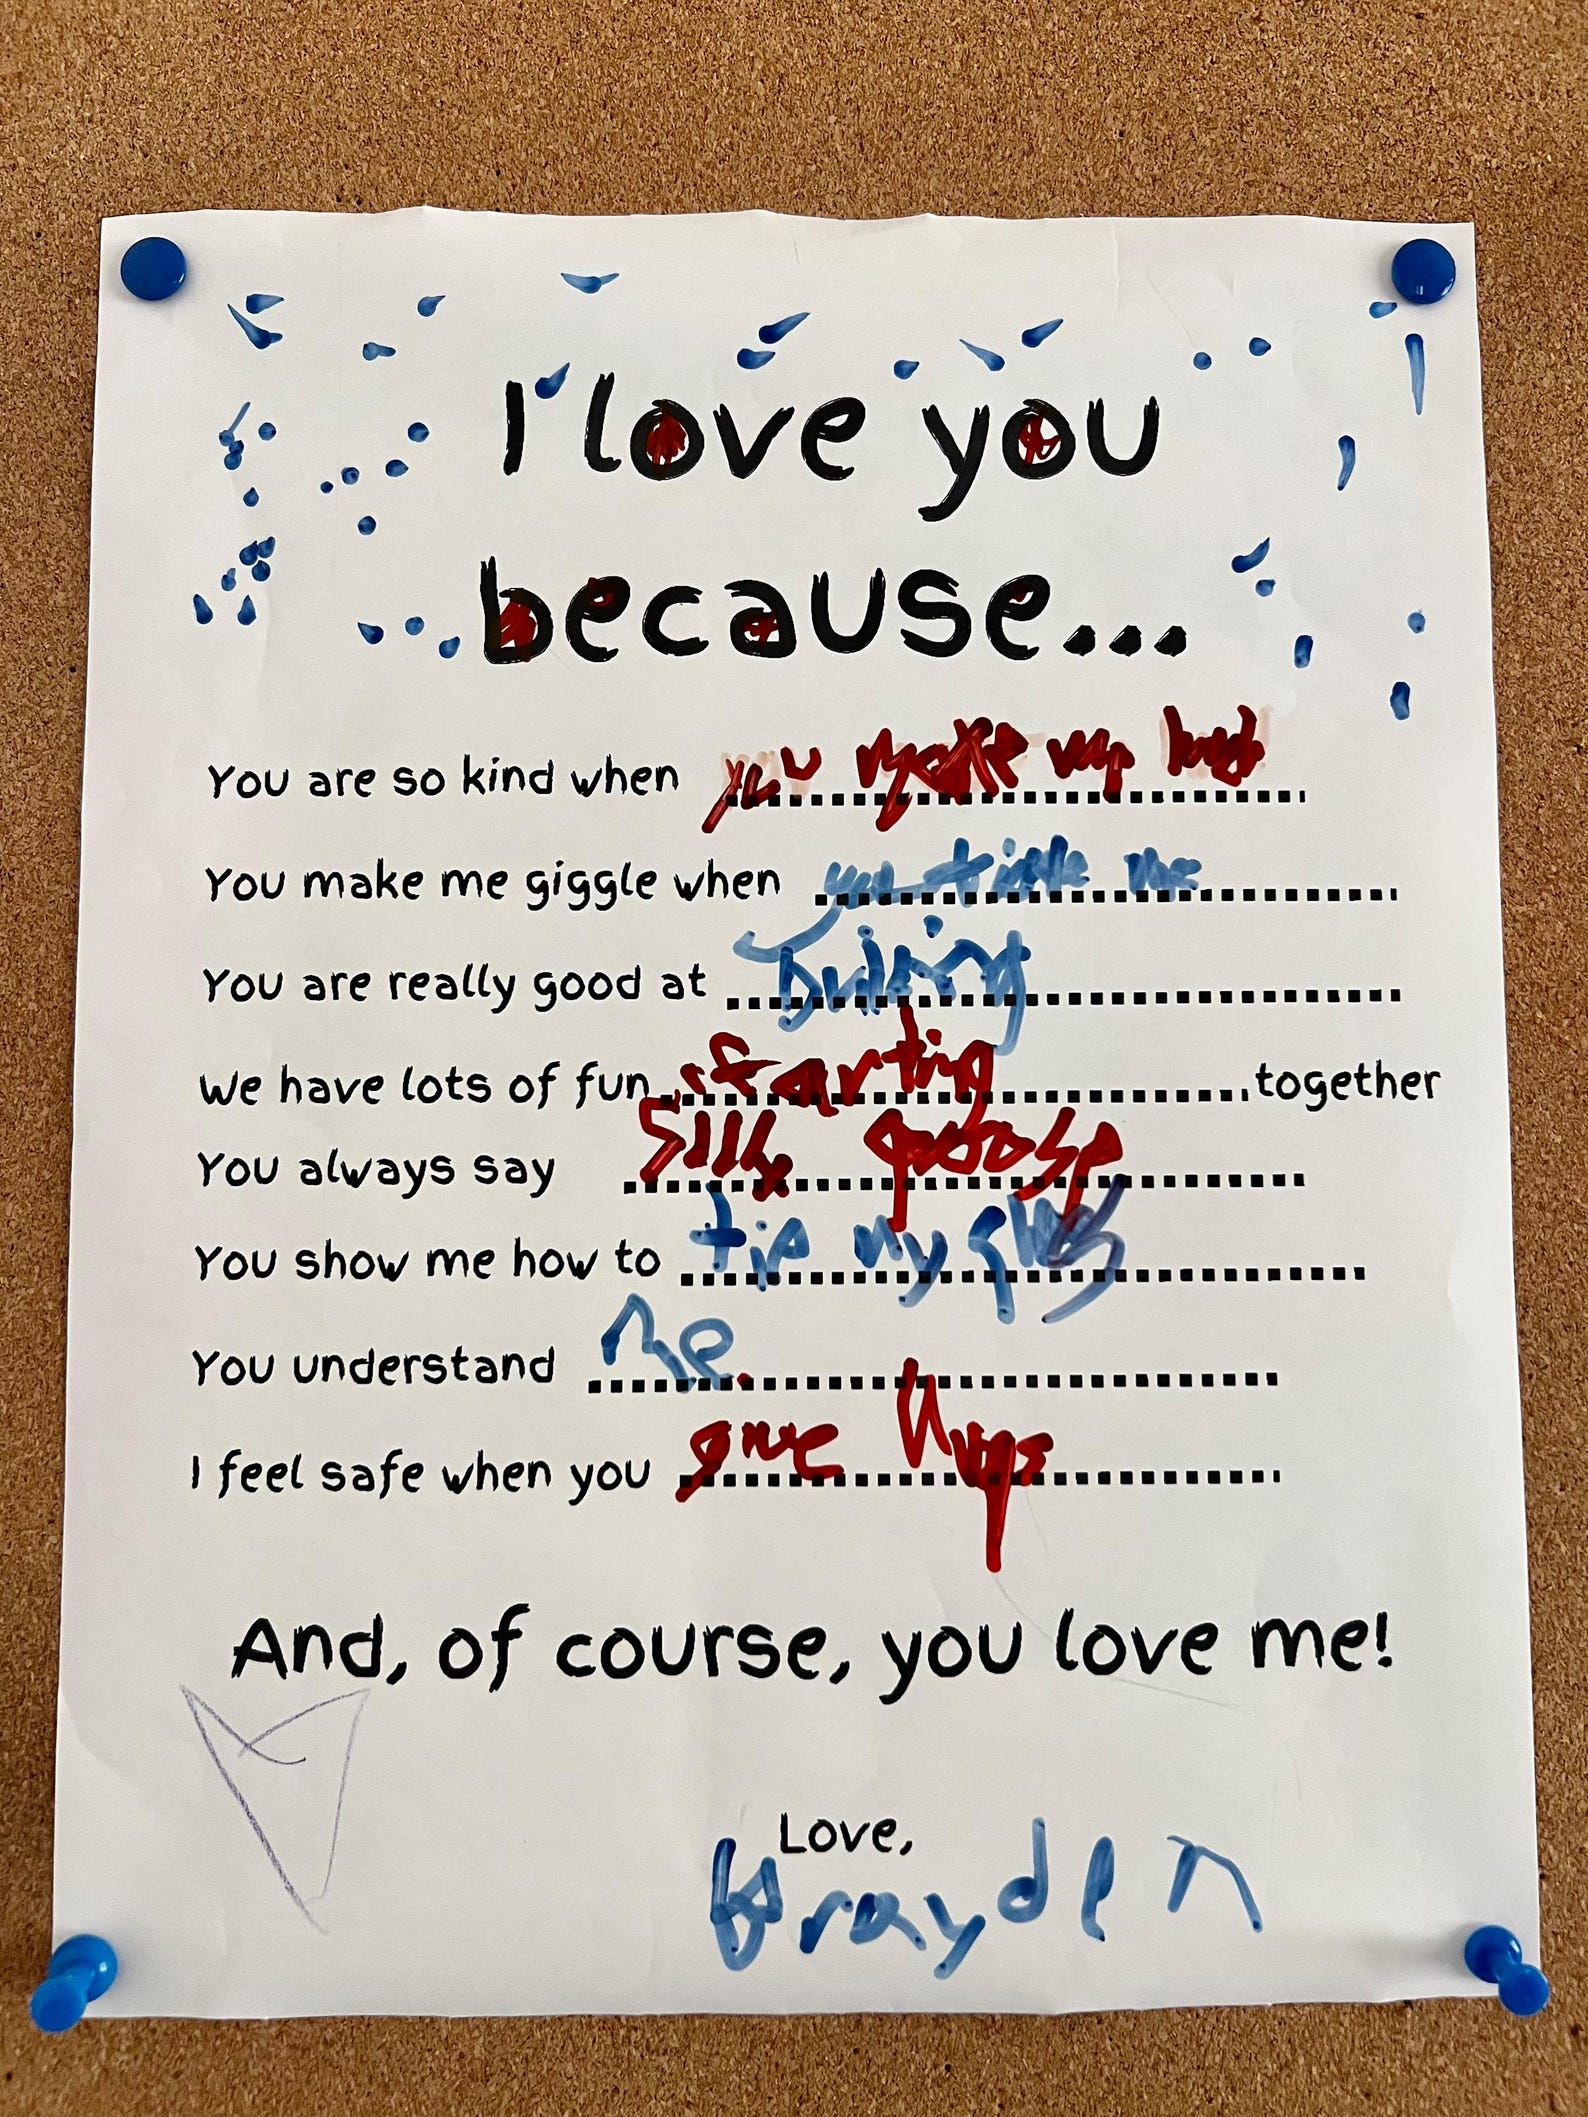 I love you
because...
You are so kind when you make my bed
You make me giggle when you tickle me
You are really good at
We have lots of fun farting together
You always say Silly goose
You show me how to tie my shos
You understand me
I feel safe when you give hugs
And, of course, you love me!
Love,
Brayden